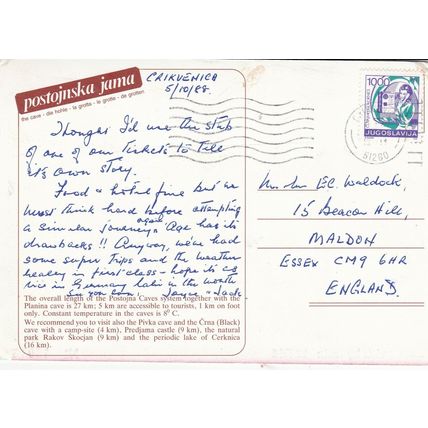 postojnska jama
the cave - die höhle - la grotta - le grotte - de grotten
CRIKVENICA
5/10/88.
1000
JUGOSLAVIJA
51260
Thought I'd use the stub
of one of our tickets to tell
its own story.
Food & hotel fine but we
must think hard before attempting
a similar journey again. Age has its
drawbacks !! Anyway, we've had
some super trips and the weather
really is first class - hope it is as
nice in Germany later in the month
See you soon Joyce & Jack
Mr & Mrs E.C. Waldock,
15 Beacon Hill,
MALDON
ESSEX CM9 6HR
ENGLAND.
The overall length of the Postojna Caves system together with the
Planina cave is 27 km; 5 km are accessible to tourists, 1 km on foot
only. Constant temperature in the caves is 8° C.
We recommend you to visit also the Pivka cave and the Črna (Black)
cave with a camp-site (4 km), Predjama castle (9 km), the natural
park Rakov Škocjan (9 km) and the periodic lake of Cerknica
(16 km).